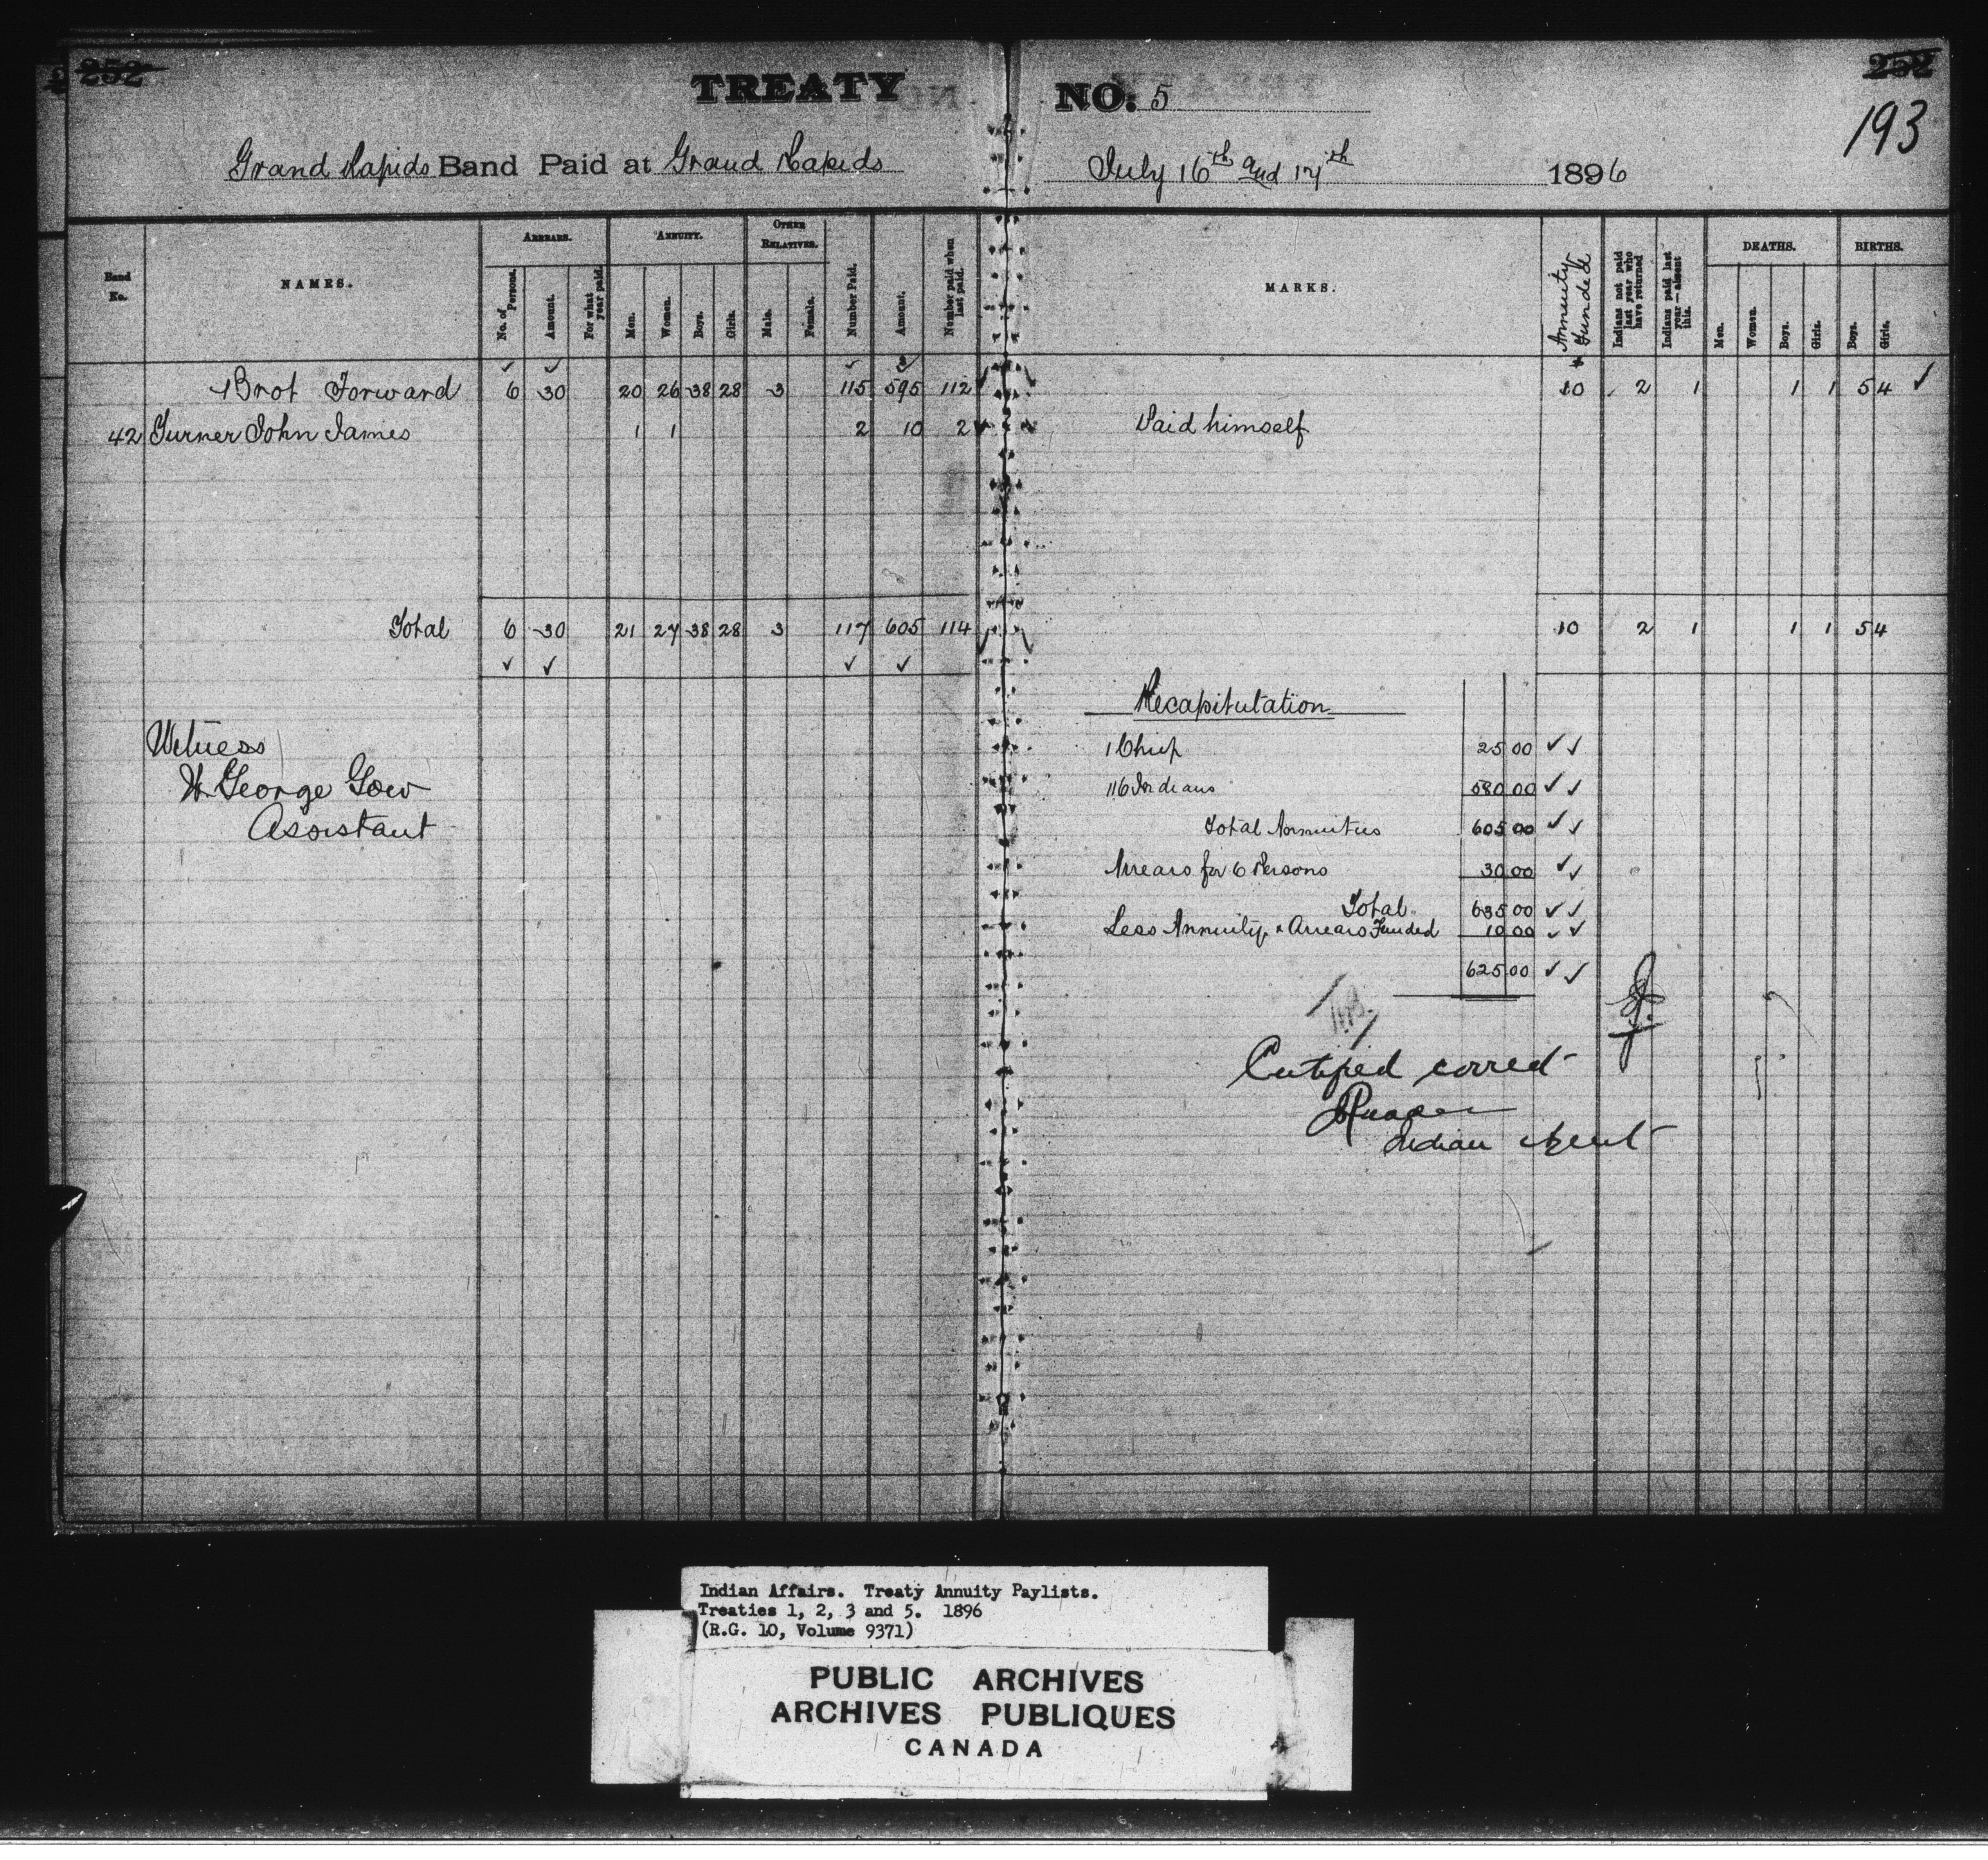 252
252
193
TREATY NO: 5
Grand Rapids Band Paid at Grand Rapids July 16th and 17th 1896
Band No.
NAMES.
ARREARS.
No. of Persons.
Amount.
For what year paid.
ANNUITY.
Men.
Women.
Boys.
Girls.
OTHER RELATIVES.
Male.
Female.
Number Paid.
Amount.
Number paid when last paid.
MARKS.
Annuity Funded
Indians not paid last year who have returned
Indians paid last year—absent this.
DEATHS.
Men.
Women.
Boys.
Girls.
BIRTHS.
Boys.
Girls.
Brot Forward 6 30 20 26 38 28 3 115 595 112 10 2 1 1 1 5 4
42 Turner John James 1 1 2 10 2 Paid himself
Total 6 30 21 27 38 28 3 117 605 114 10 2 1 1 1 5 4
Witness
W. George Gow
Assistant
Recapitulation
1 Chief 25 00
116 Indians 580 00
Total Annuities 605 00
Arrears for 6 Persons 30 00
Total 635 00
Less Annuity & Arrears Funded 10 00
625 00
Certified correct
Indian Agent
Indian Affairs. Treaty Annuity Paylists.
Treaties 1, 2, 3 and 5. 1896
(R.G. 10, Volume 9371)
PUBLIC ARCHIVES
ARCHIVES PUBLIQUES
CANADA